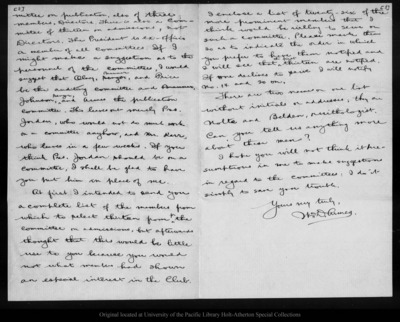 mittee on publication, also of three
members, Directors. There is also a Com-
mittee of thirteen on admissions, not
Directors. The President is ex-officio
a member of all Committees. If I
might make a suggestion as to the
personnel of the committees I would
suggest that Olney, and Price
be the auditing committee and
Johnson, and
committee. This leaves merely Prof.
Jordan, who would not do much work
on a committee anyhow, and Mr. Kerr,
who leaves in a few weeks. If you
think Prof. Jordan should be on a
committee, I shall be glad to have
you put him in place of me.
At first I intended to send you
a complete list of the members from
which to select thirteen from for the
committee on admissions, but afterwards
thought that this would be little
use to you because you would
not what member had shown
an especial interest in the Club.
I enclose a list of twenty-six of the
more prominent members that I
think would be willing to serve on
such a committee. Please mark them
so as to indicate the order in which
you prefer to have them notified and
I will see that thirteen are notified.
If one declines to serve I will notify
No. 14 and so on.
There are two names on our list
without initials or addresses, they are
Nolte and Belden,
Can you tell us anything more
about these men?
I hope you will not think it pre-
sumptuous in me to make suggestions
in regard to the committees. I do it
simply to save you trouble.
Yours very truly,
Original located at University of the Pacific Library Holt-Atherton Special Collections